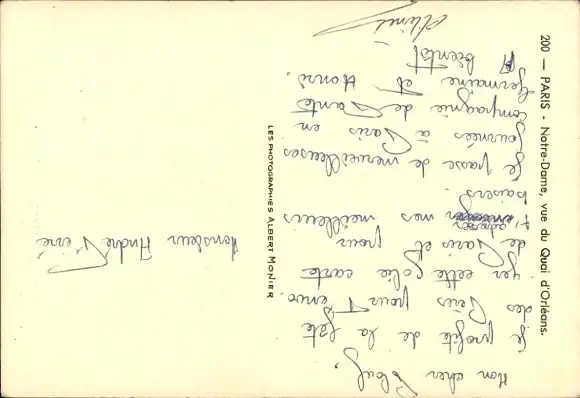 Mon cher Plouf,
Je profite de la fête
des Pères pour t'envo
yer cette jolie carte
de Paris et pour
t'adresser mos meilleurs
baisers.
Je passe de merveilleuses
journées à Paris en
compagnie de Tantes
Germaine et Honré.
A bientôt
Monsieur André
200 — PARIS - Notre-Dame, vue du Quai d'Orléans.
LES PHOTOGRAPHIES ALBERT MONIER